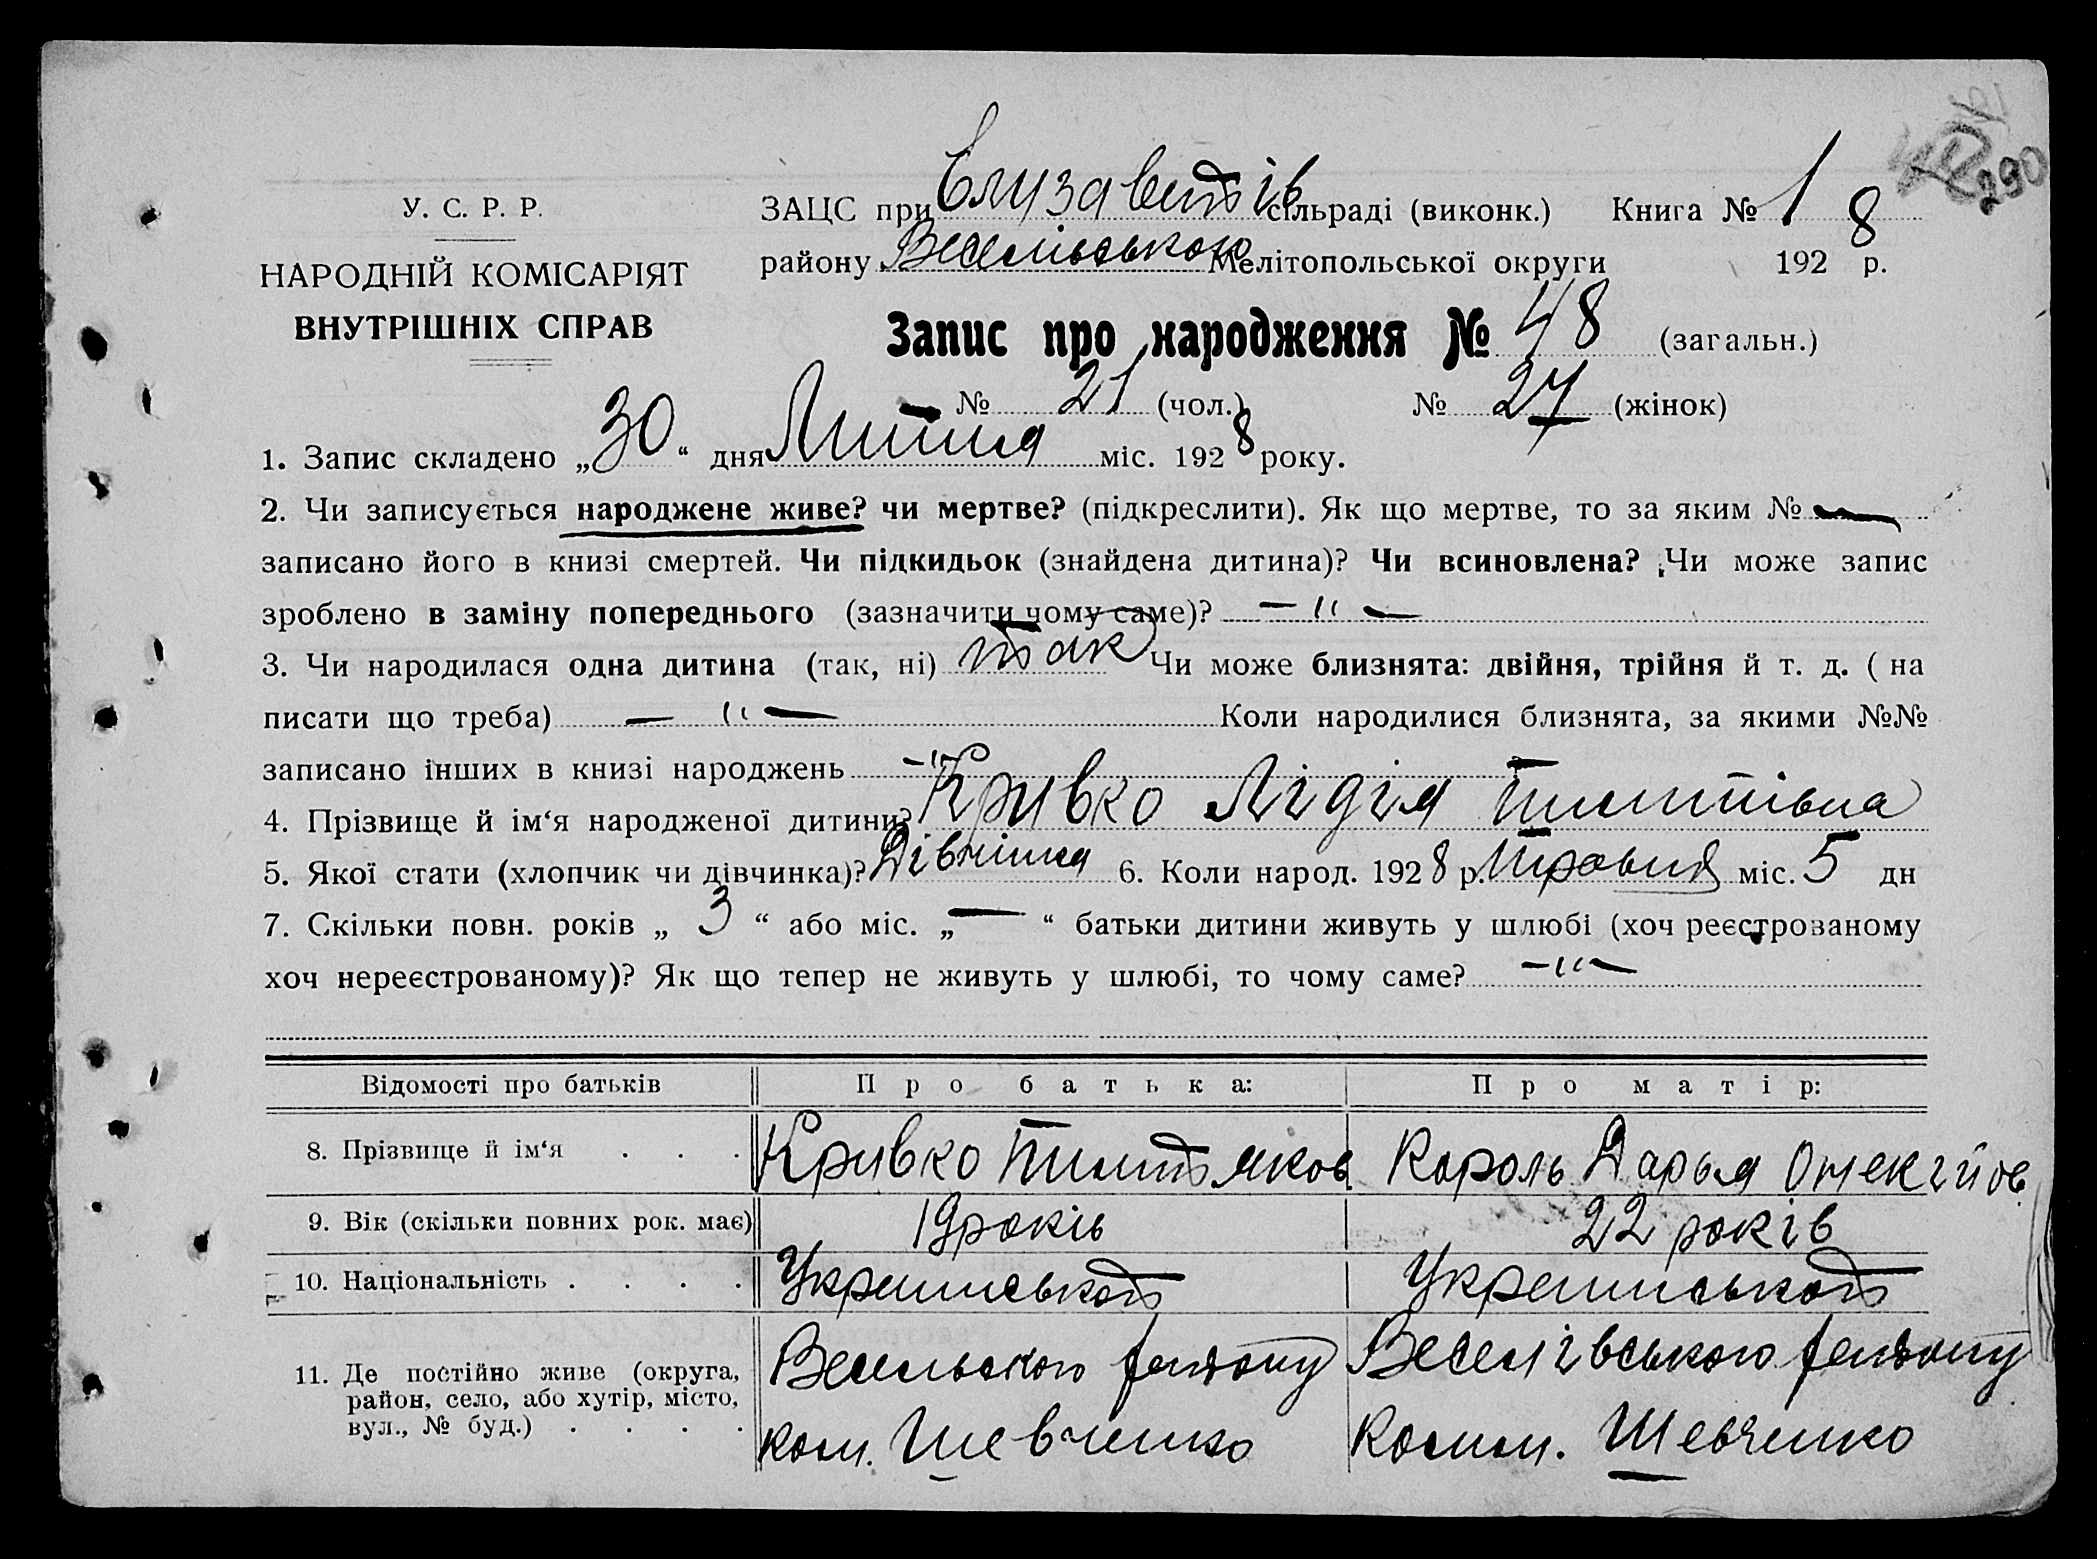 290
У. С. Р. Р.
НАРОДНІЙ КОМІСАРІЯТ
ВНУТРІШНІХ СПРАВ
ЗАЦС при Єлузаветів сільраді (виконк.) Книга № 1
району Веселівською Мелітопольської округи 192 8 р.
Запис про народження № 48 (загальн.)
№ 21 (чол.) № 27 (жінок)
1. Запис складено „ 30 “ дня Липня міс. 192 8 року.
2. Чи записується народжене живе? чи мертве? (підкреслити). Як що мертве, то за яким № —
записано його в книзі смертей. Чи підкидьок (знайдена дитина)? Чи всиновлена? Чи може запис
зроблено в заміну попереднього (зазначити чому саме)? — „ —
3. Чи народилася одна дитина (так, ні) так Чи може близнята: двійня, трійня й т. д. ( на
писати що треба) — „ — Коли народилися близнята, за якими №№
записано інших в книзі народжень — „ —
4. Прізвище й ім‘я народженої дитини? Кривко Лідія
5. Якої стати (хлопчик чи дівчинка)? Дівчинка 6. Коли народ. 192 8 р. Травня міс. 5 дн
7. Скільки повн. років „ 3 “ або міс. „ — “ батьки дитини живуть у шлюбі (хоч реєстрованому
хоч нереєстрованому)? Як що тепер не живуть у шлюбі, то чому саме? — „ —
Відомості про батьків Про батька: Про матір:
8. Прізвище й ім‘я . . . Кривко Король Дарья
9. Вік (скільки повних рок. має) 19 років 22 років
10. Національність . . . .
11. Де постійно живе (округа,
район, село, або хутір, місто,
вул., № буд.) . . . .
Веселівського району
ком. Шевченко Комм. Шевченко